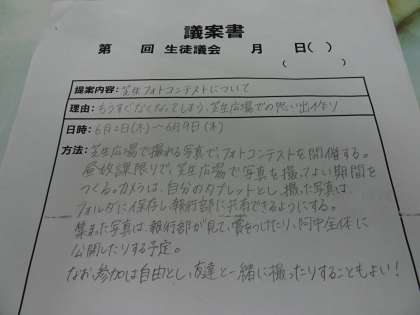 議案書
第 回 生徒議会 月 日( )
( )
提案内容：芝生フォトコンテストについて
理由：もうすぐなくなってしまう、芝生広場での思い出作り
日時：6月2日(木)～6月9日(木)
方法：芝生広場で撮れる写真で、フォトコンテストを開催する。
昼放課限りで、芝生広場で写真を撮ってよい期間を
つくる。カメラは、自分のタブレットとし、撮った写真は
フォルダに保存し執行部に共有できるようにする。
集まった写真は、執行部が見て、賞をつけたり、阿中全体に
公開したりする予定。
なお、参加は自由とし、友達と一緒に撮ったりすることもよい！